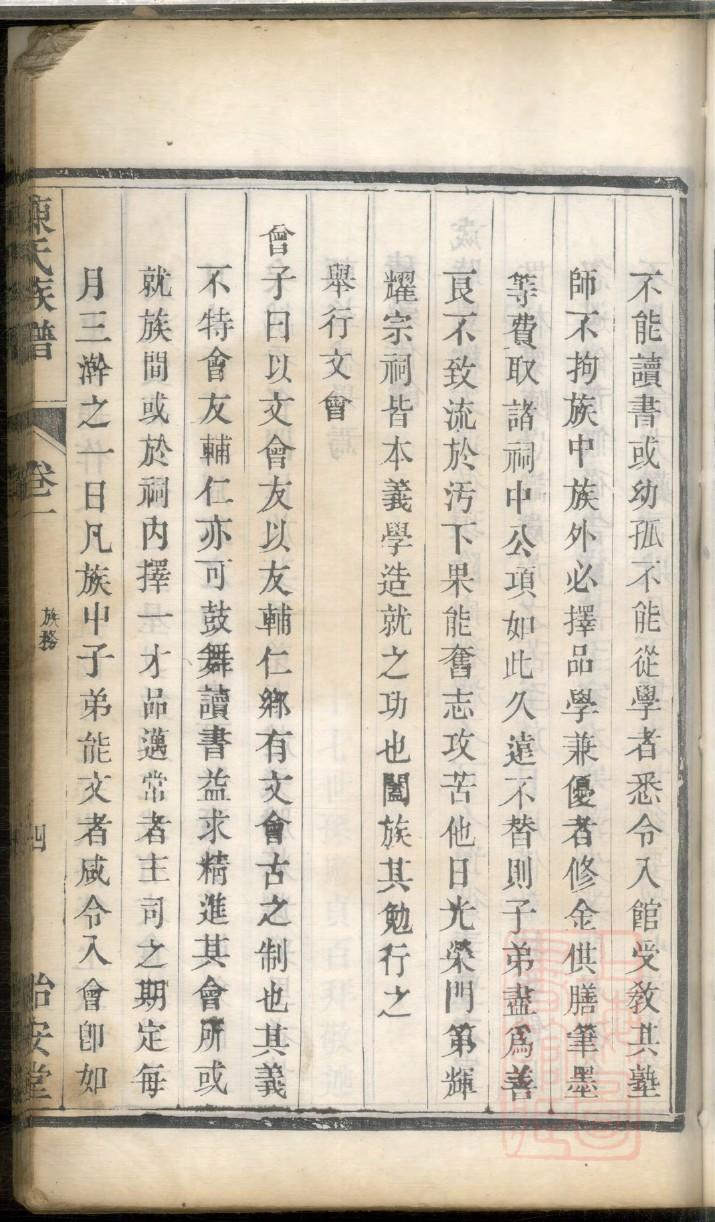 不能讀書或幼孤不能從學者悉令入館受敎其塾
師不拘族中族外必擇品學兼優者修金供膳筆墨
等費取諸祠中公項如此久遠不替則子弟盡爲善
良不致流於汚下果能奮志攻苦他日光榮門第輝
耀宗祠皆本義學造就之功也闔族其勉行之
舉行文會
曾子曰以文會友以友輔仁鄉有文會古之制也其義
不特會友輔仁亦可鼓舞讀書益求精進其會所或
就族間或於祠內擇一才品邁常者主司之期定每
月三澣之一日凡族中子弟能文者咸令入會卽如
陳氏族譜
卷一
族務
四
怡安堂